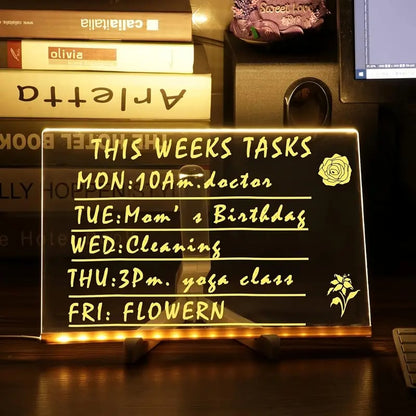 callaitalia callaitalia
olivia
Arletta
THE HOTEL BOOK
LLY HOPPEN
The Hote
Sweet Love
THIS WEEKS TASKS
MON:10Am.doctor
TUE:Mom's Birthday
WED:Cleaning
THU:3Pm. yoga class
FRI: FLOWERN